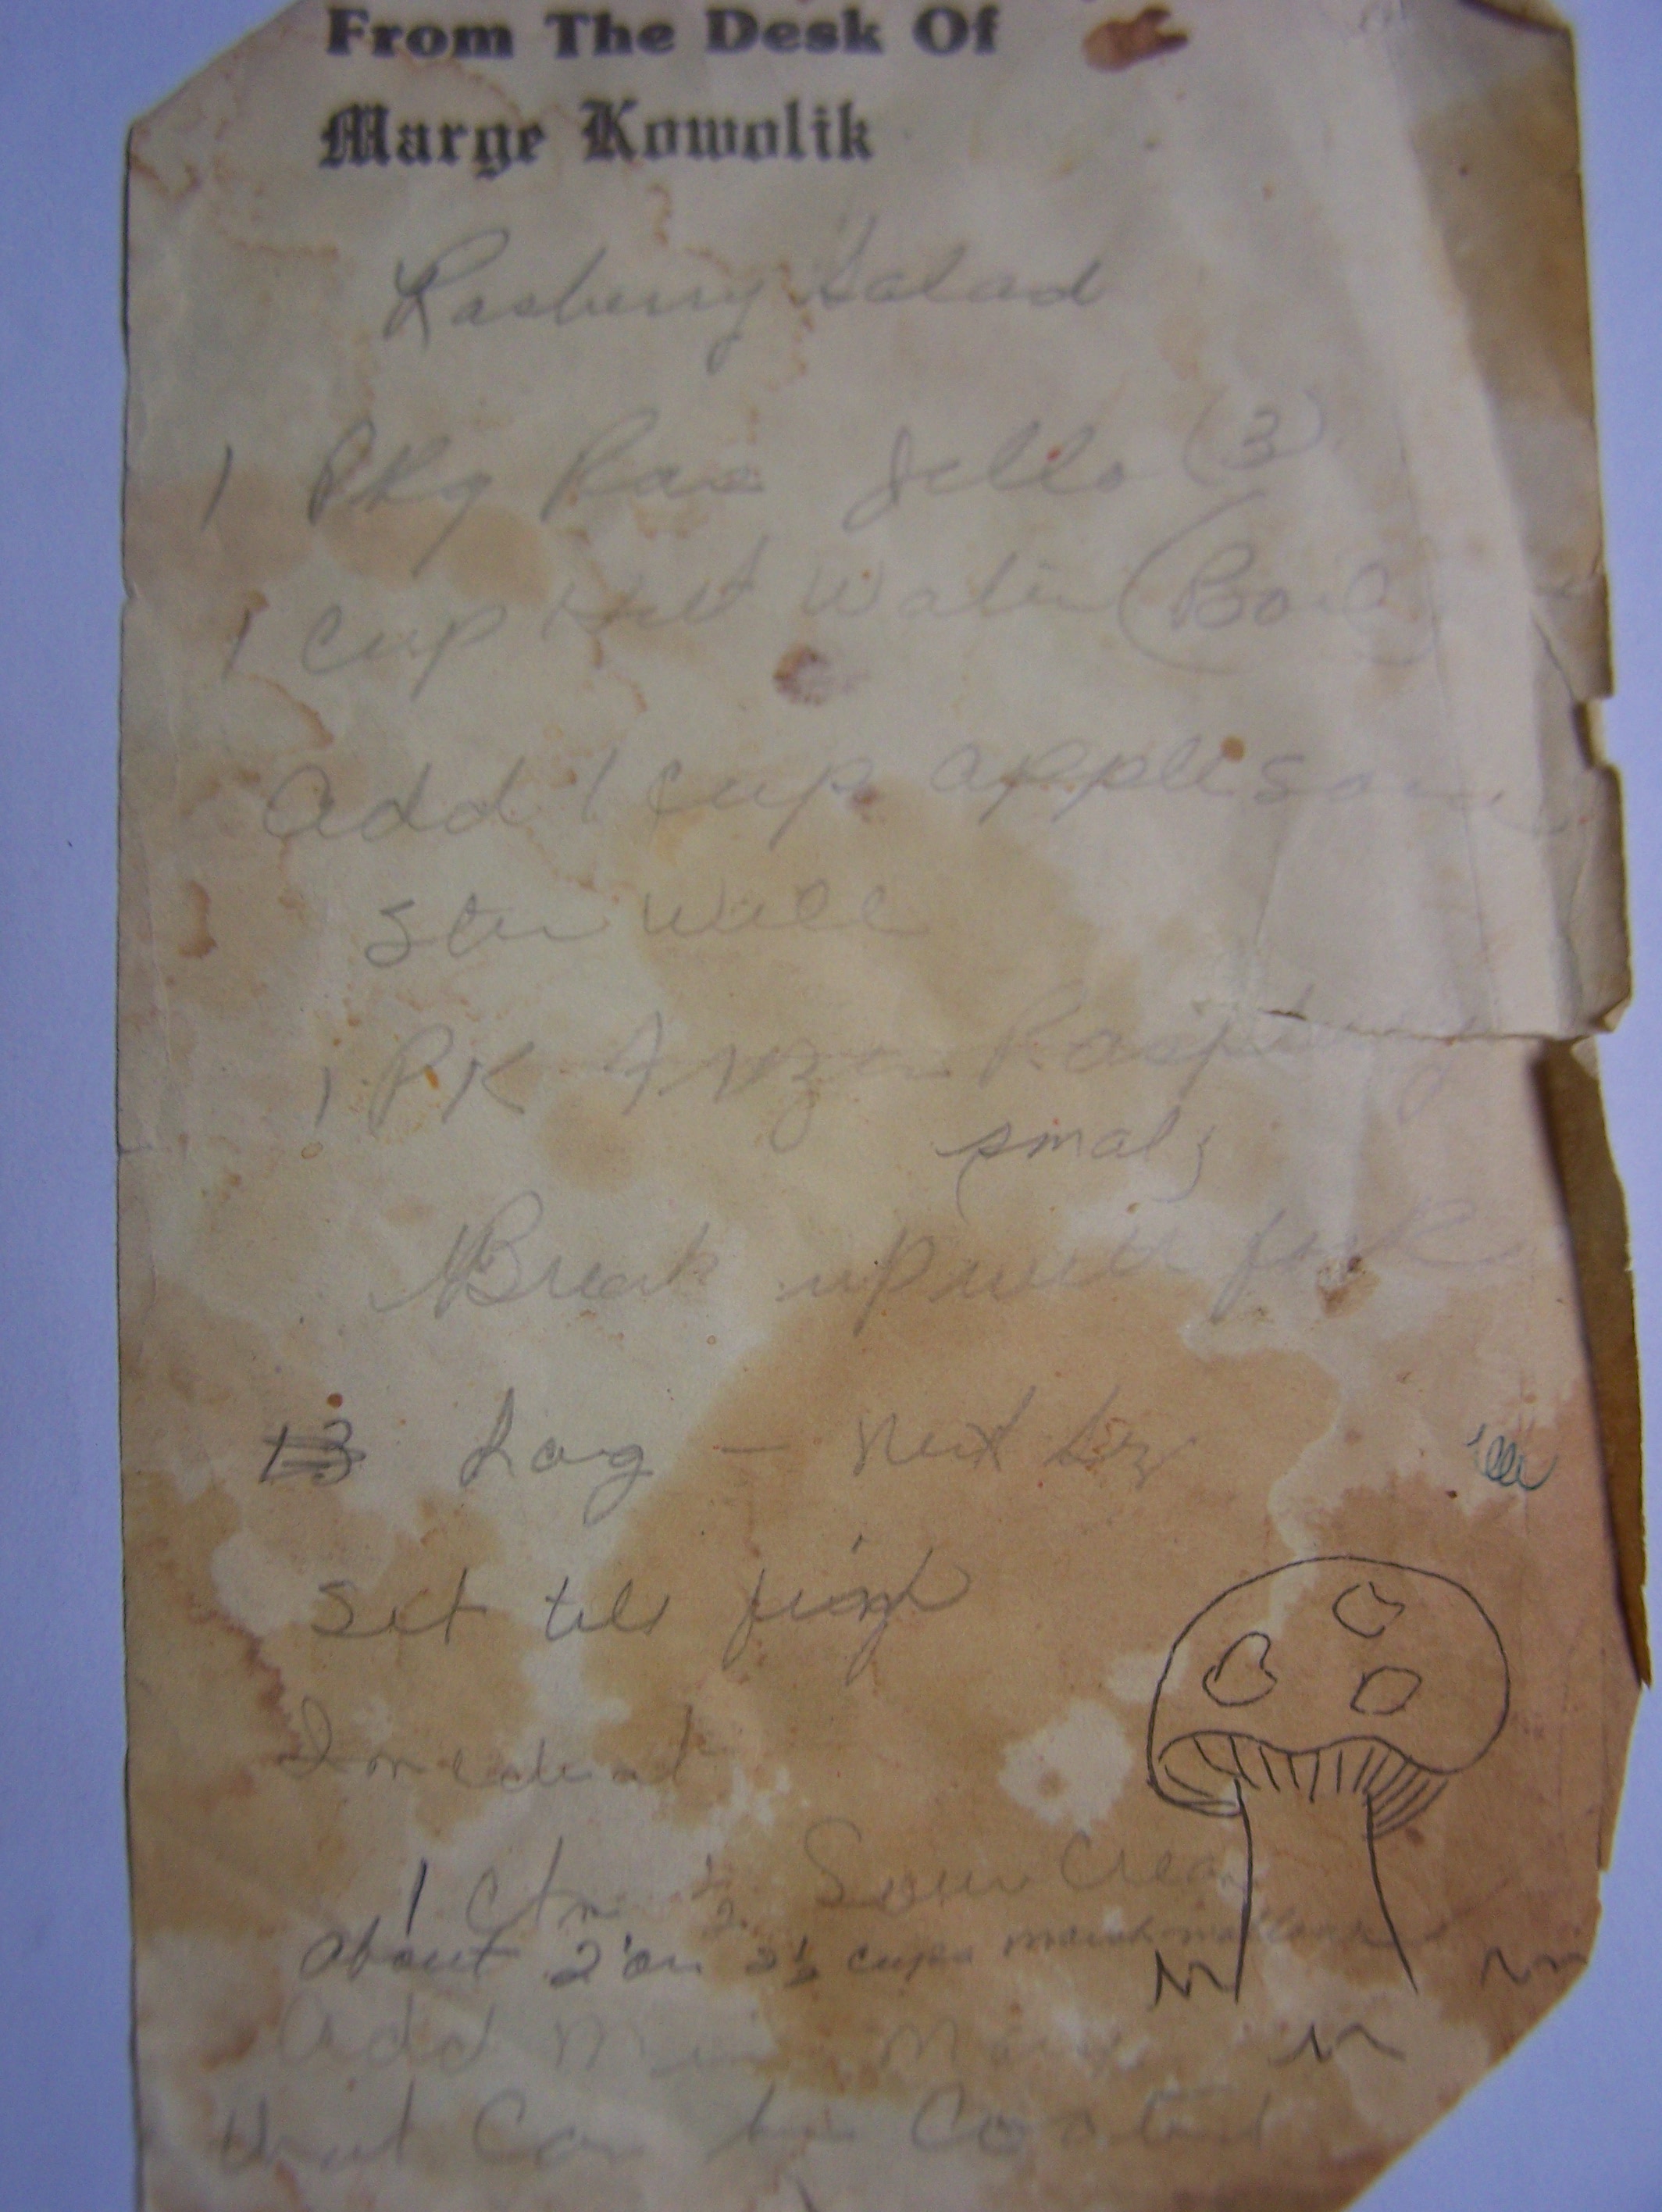 From The Desk Of
Marge Kowolik
Rasberry Salad
1 Pkg Ras Jello (3)
1 cup Hot Water (Boil
Add 1 cup applesauce
Stir well
1 PK Frozen Raspberry
small
Break up with fork
Large — Next
Set till
1 Ctn 1/2 Sour Cream
About 2 or 2 1/2 cups marshmallows
Add Min
that can be Coated